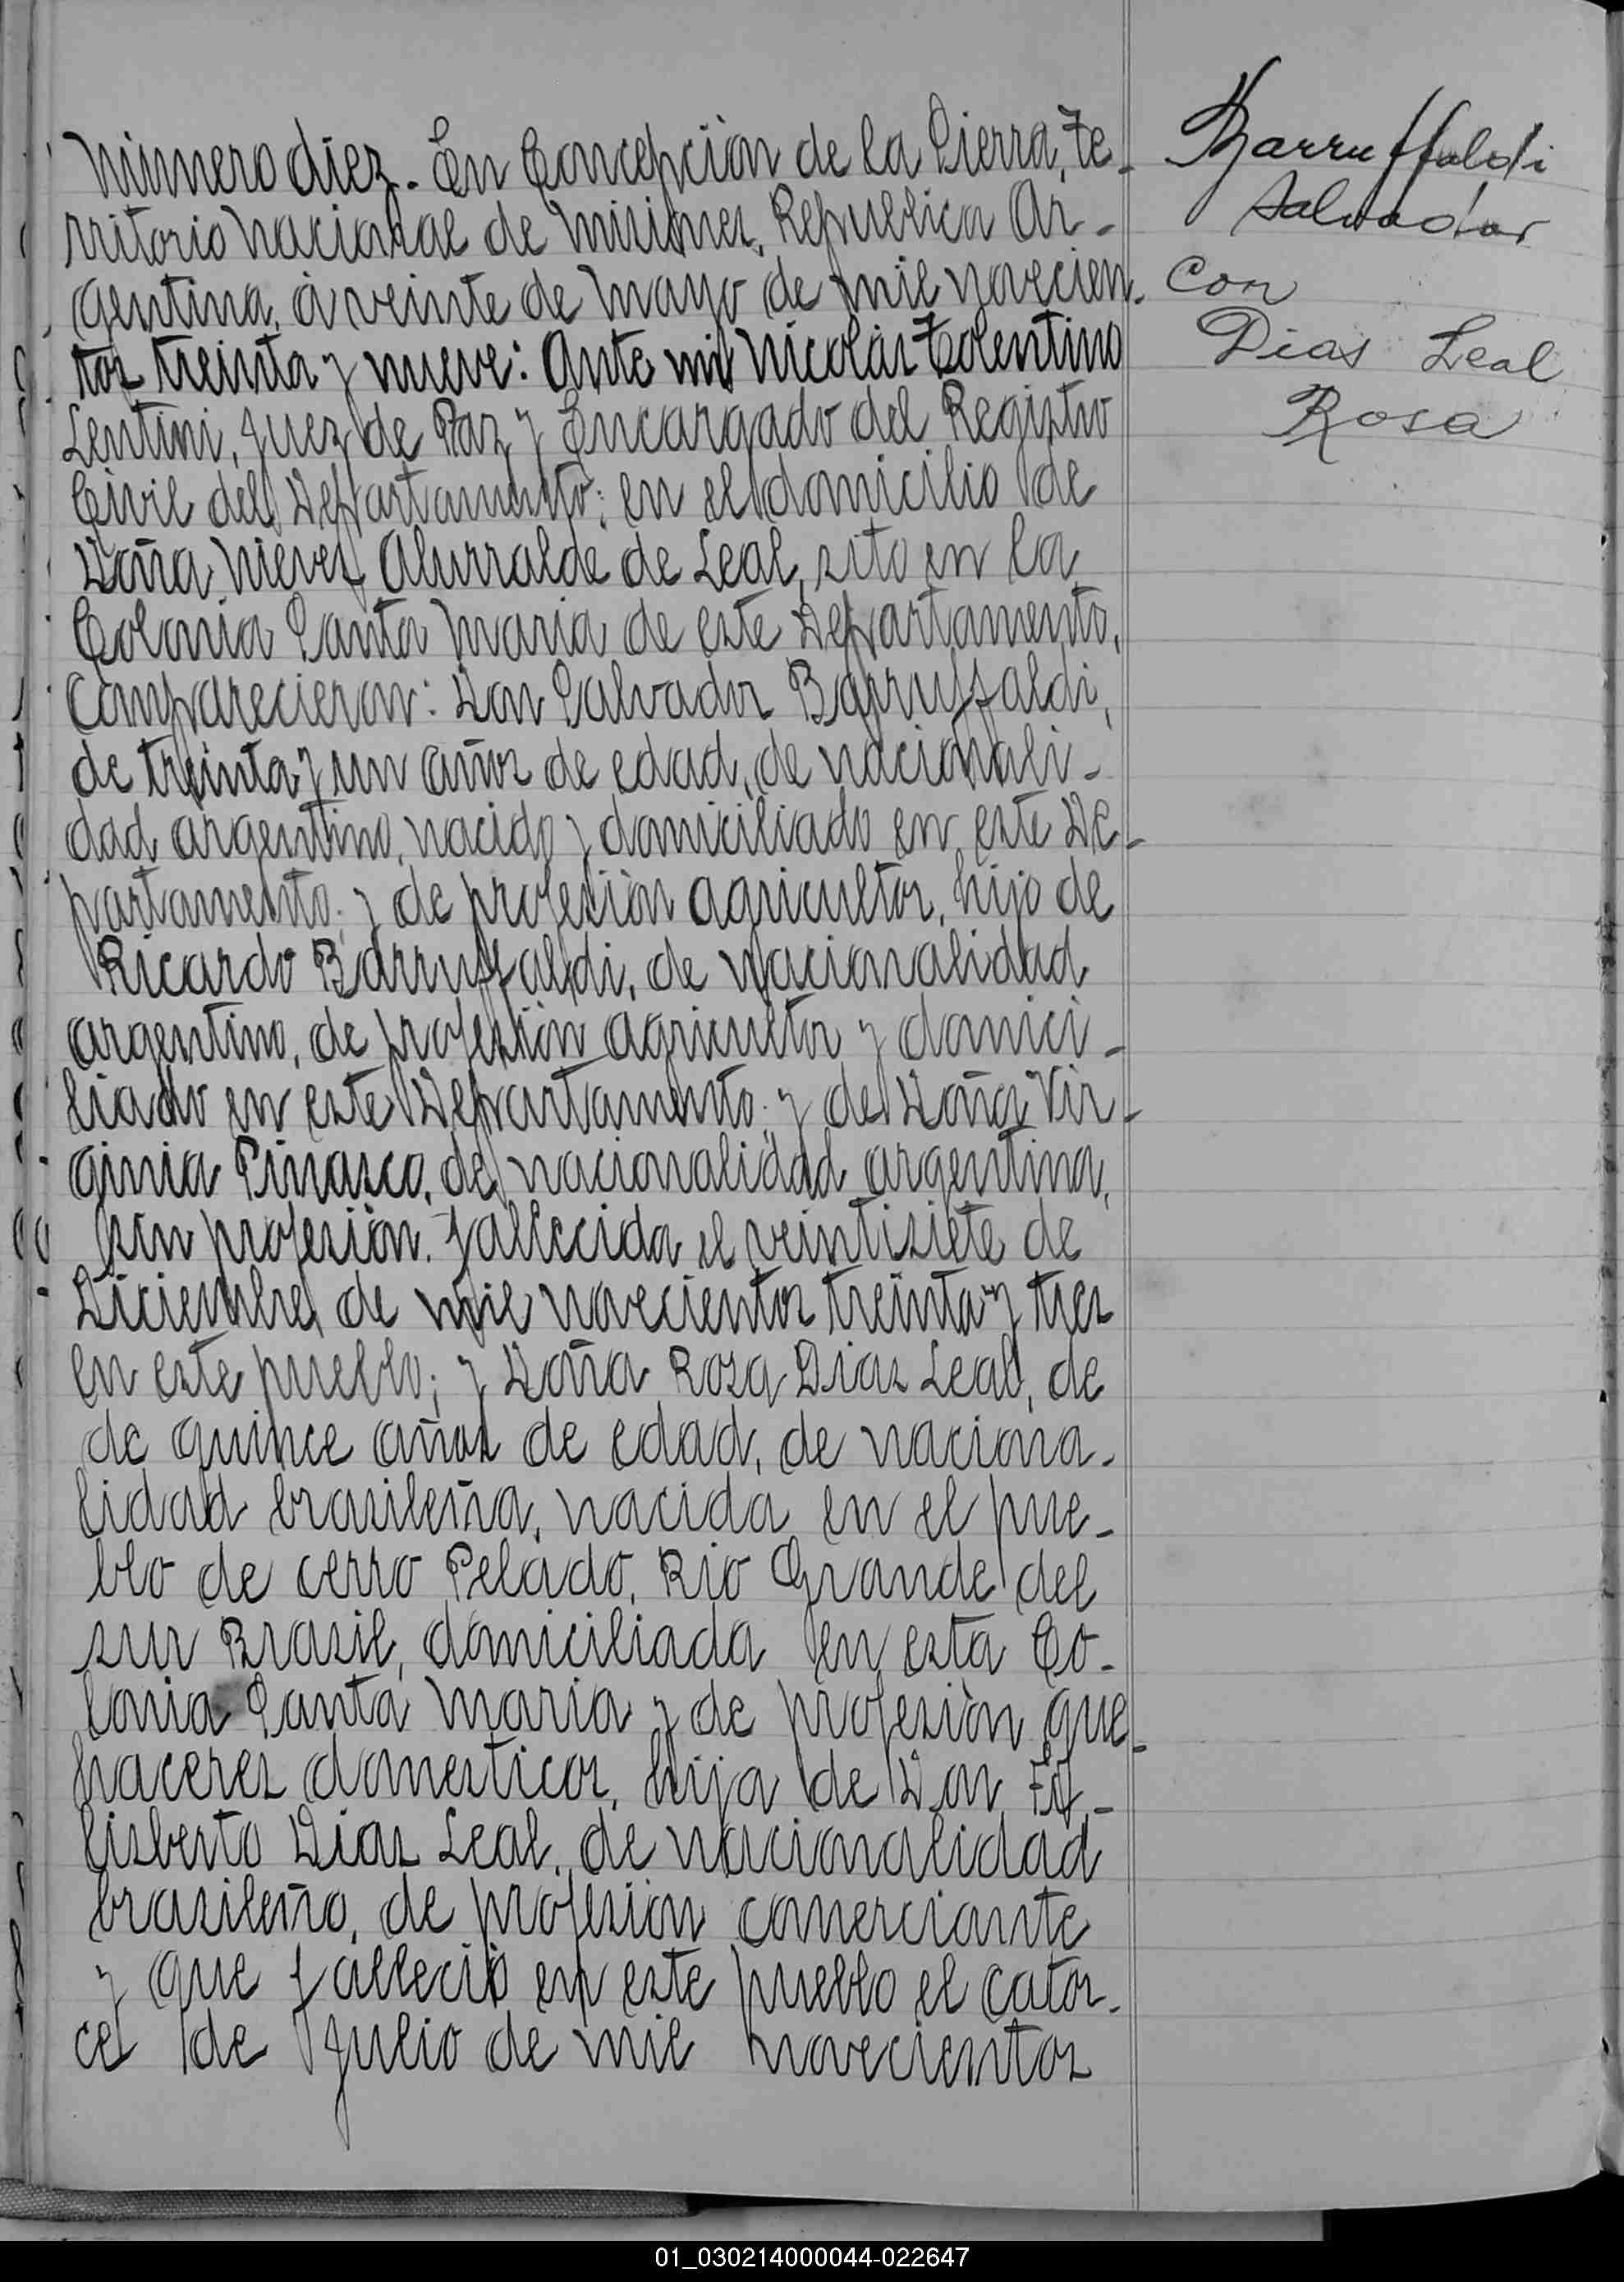 Número diez. En Concepción de la Sierra, te-
rritorio nacional de Misiones, Republica Ar-
gentina, à veinte de Mayo de mil novecien-
tos treinta y nueve: Ante mi Nicolás Tolentino
Lentini, Juez de Paz y Encargado del Registro
Civil del Departamento; en el domicilio de
Doña Nieves Alurralde de Leal, sito en la
Colonia Santa Maria de este Departamento,
Comparecieron: Don Salvador Barruffaldi,
de treinta y un años de edad, de nacionali-
dad argentino, nacido y domiciliado en este De-
partamento; y de profesiòn agricultor, hijo de
Ricardo Barruffaldi, de nacionalidad
argentino, de profesiòn agricultor y domici-
liado en este Departamento; y de Doña Vir-
ginia Pinasco, de nacionalidad argentina,
sin profesiòn, fallecida el veintisiete de
Diciembre de mil novecientos treinta y tres
en este pueblo; y Doña Rosa Dias Leal, de
de quince años de edad, de naciona-
lidad brasileña, nacida en el pue-
blo de cerro Pelado, Rio Grande del
sur Brasil, domiciliada en esta Co-
lonia Santa Maria y de profesiòn que-
haceres domesticos, hija de Don
lisberto Dias Leal, de nacionalidad
brasileño, de profesiòn comerciante
y que falleciò en este pueblo el cator-
ce de Julio de mil novecientos
Barruffaldi
Salvador
con
Dias Leal
Rosa
01_030214000044-022647